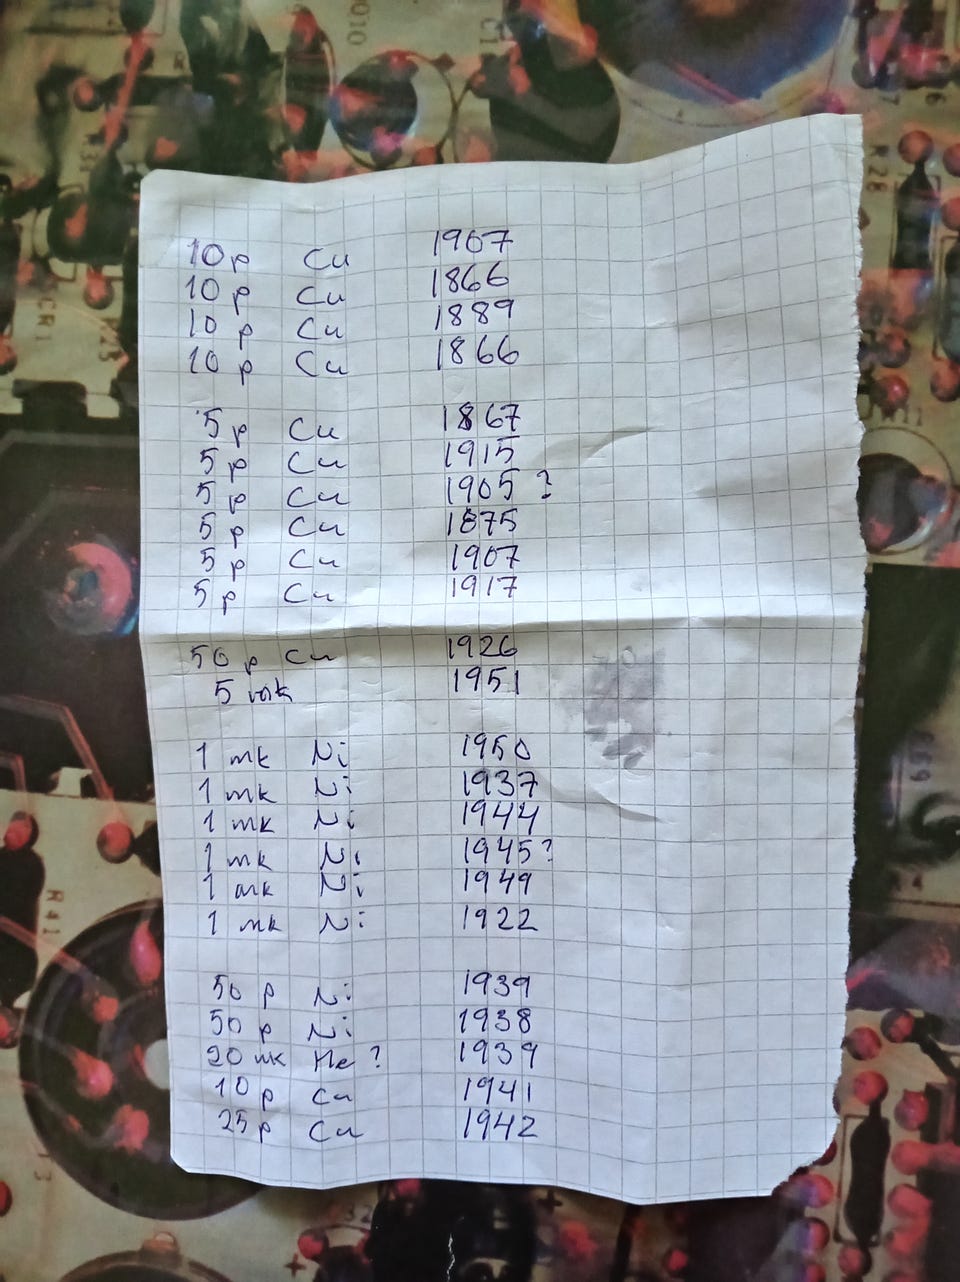 10 p Cu 1907
10 p Cu 1866
10 p Cu 1889
10 p Cu 1866
5 p Cu 1867
5 p Cu 1915
5 p Cu 1905 ?
5 p Cu 1875
5 p Cu 1907
5 p Cu 1917
50 p Cu 1926
5 mk 1951
1 mk Ni 1950
1 mk Ni 1937
1 mk Ni 1944
1 mk Ni 1945?
1 mk Ni 1949
1 mk Ni 1922
50 p Ni 1939
50 p Ni 1938
20 mk He ? 1939
10 p Cu 1941
25 p Cu 1942